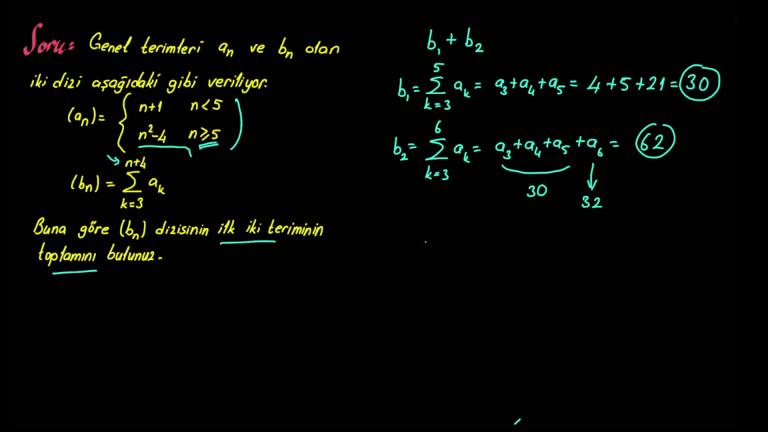 Soru: Genel terimleri aₙ ve bₙ olan
iki dizi aşağıdaki gibi veriliyor.
(aₙ) = { n+1 n<5
n²-4 n≥5 )
(bₙ) = ∑ₖ₌₃ⁿ⁺⁴ aₖ
Buna göre (bₙ) dizisinin ilk iki teriminin
toplamını bulunuz.
b₁ + b₂
b₁ = ∑ₖ₌₃⁵ aₖ = a₃+a₄+a₅ = 4+5+21 = 30
b₂ = ∑ₖ₌₃⁶ aₖ = a₃+a₄+a₅+a₆ = 62
30
32